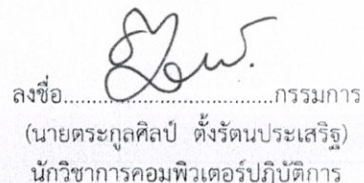 ลงชื่อ........................................กรรมการ
(นายตระกูลศิลป์ ตั้งรัตนประเสริฐ)
นักวิชาการคอมพิวเตอร์ปฏิบัติการ